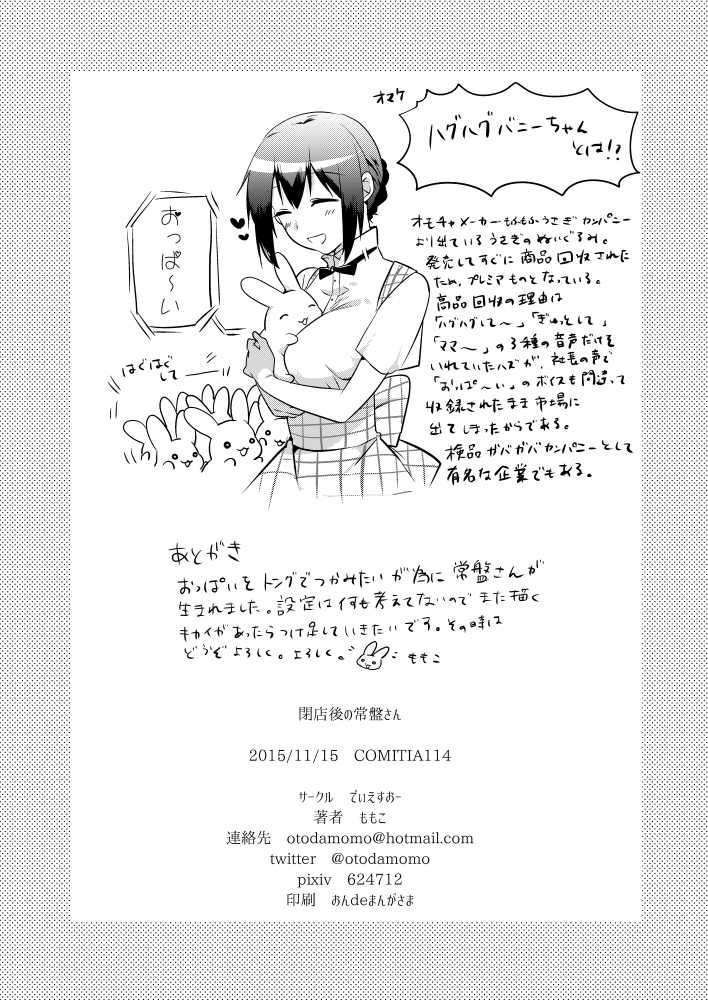 オマケ
ハグハグバニーちゃん
とは!?
おっぱ〜い
はぐはぐ
して——
オモチャメーカーもふもふうさぎカンパニー
より出ているうさぎのぬいぐるみ。
発売してすぐに商品回収された
ため、プレミアものとなっている。
商品回収の理由は
「ハグハグして〜」「ぎゅっとして」
「ママ〜」の3種の音声だけを
いれていたハズが、社長の声で
「おっぱ〜い」のボイスも間違って
収録されたまま市場に
出てしまったからである。
検品ガバガバカンパニーとして
有名な企業でもある。
あとがき
おっぱいをトングでつかみたいが為に常盤さんが
生まれました。設定は何も考えてないのでまた描く
キカイがあったらつけ足していきたいです。その時は
どうぞよろしく。よろしく。 ももこ
閉店後の常盤さん
2015/11/15 COMITIA114
サークル でぃえすおー
著者 ももこ
連絡先 otodamomo@hotmail.com
twitter @otodamomo
pixiv 624712
印刷 おんdeまんがさま